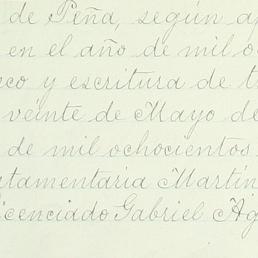 de Peña, según ap
en el año de mil o
co y escritura de t
veinte de Mayo de
de mil ochocientos
tamentaria Martín
icenciado Gabriel Ag